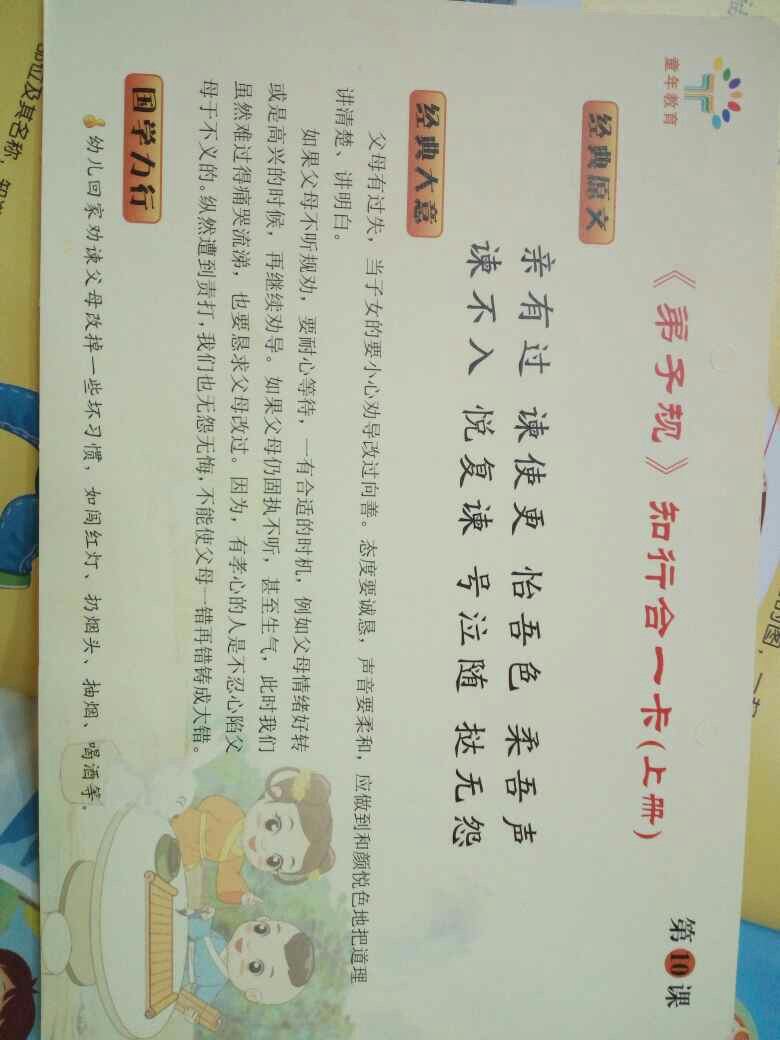 童年教育
《弟子规》知行合一卡(上册)
第10课
经典原文
亲有过 谏使更 怡吾色 柔吾声
谏不入 悦复谏 号泣随 挞无怨
经典大意
父母有过失，当子女的要小心劝导改过向善。态度要诚恳，声音要柔和，应做到和颜悦色地把道理
讲清楚、讲明白。
如果父母不听规劝，要耐心等待，一有合适的时机，例如父母情绪好转
或是高兴的时候，再继续劝导。如果父母仍固执不听，甚至生气，此时我们
虽然难过得痛哭流涕，也要恳求父母改过。因为，有孝心的人是不忍心陷父
母于不义的。纵然遭到责打，我们也无怨无悔，不能使父母一错再错铸成大错。
国学力行
幼儿回家劝谏父母改掉一些坏习惯，如闯红灯、扔烟头、抽烟、喝酒等。